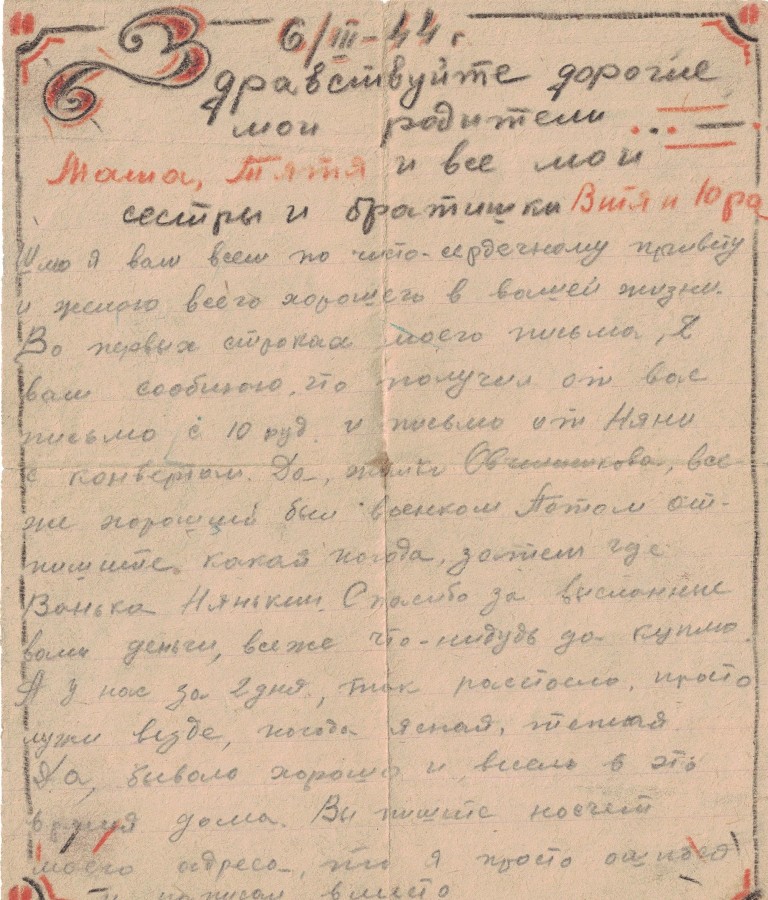 6/III-44 г.
Здравствуйте дорогие
мои родители
Мама, Тятя и все мои
сестры и братишки Витя и Юра
Шлю я вам всем по чисто-сердечному привету
и желаю всего хорошего в вашей жизни.
Во первых строках моего письма, Я
вам сообщаю, что получил от вас
письмо с 10 руб. и письмо от Няни
с конвертом. Да, жалко Овчинникова, все
же хороший был военком Потом от-
пишите, какая погода, затем где
Ванька Нянькин. Спасибо за высланные
вами деньги, всеже что-нибудь да куплю.
А у нас за 2 дня, так растаяло, просто
лужи везде, погода ясная, теплая
Да, бывало хорошо и весело в это
время дома. Вы пишите насчет
моего адреса, что я просто ошибся
и написал вместо